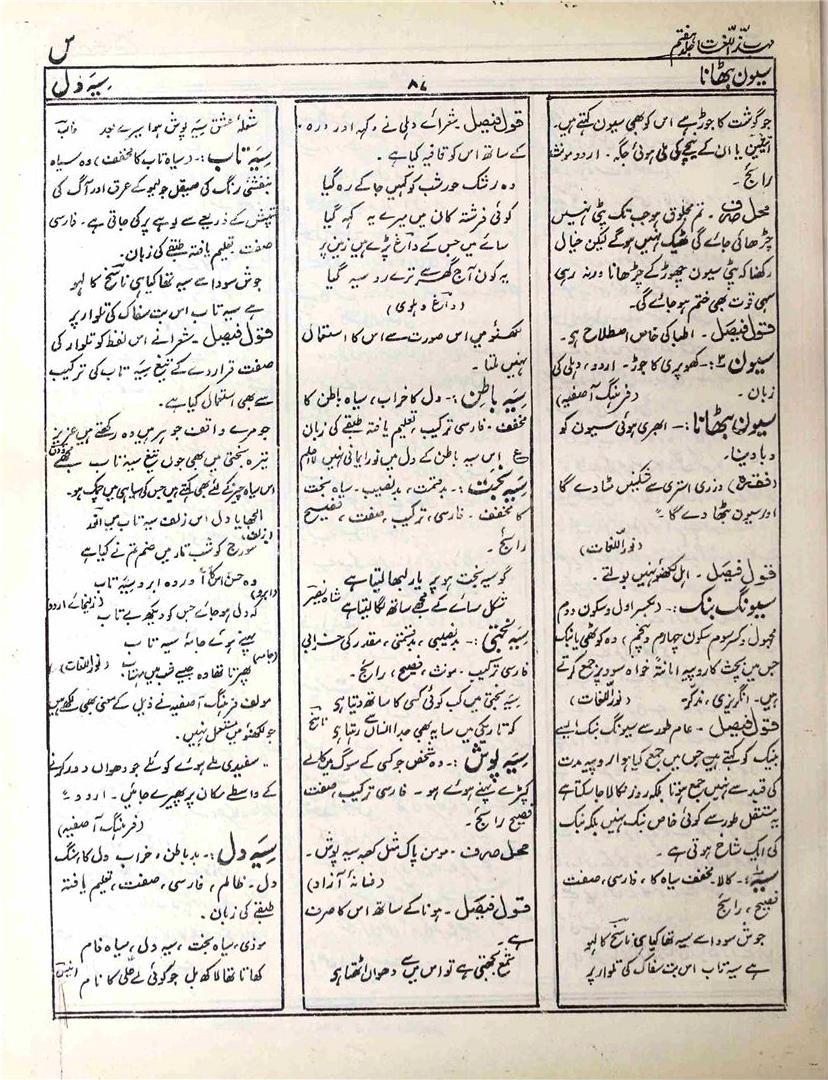 مہذب اللغات جلد ہفتم
س
سیون بٹھانا
۸۷
سیہ دل
جو گوشت کا جوڑ ہے اس کو بھی سیون کہتے ہیں۔
انثیین یا ان کے بیچ کی ملی ہوئی جگہ۔ اردو مونث
رائج۔
محل صرف۔ تم مخلوق ہو جب تک پٹی نہیں
چڑھائی جائے گی ٹھیک نہیں ہوگے لیکن خیال
رکھنا کہ پٹی سیون چھوڑ کے چڑھانا ورنہ رہی
سہی قوت بھی ختم ہو جائے گی۔
قول فیصل۔ اطبا کی خاص اصطلاح ہی۔
سیون ۳:- کھوپری کا جوڑ۔ اردو، دہلی کی
زبان۔ (فرہنگ آصفیہ)
سیون بٹھانا:- ابھری ہوئی سیون کو
دبا دینا۔
درزی استری سے شکنیں مٹا دے گا
اور سیون بٹھا دے گا۔"
(نور اللغات)
قول فیصل۔ اہل لکھنؤ نہیں بولتے۔
سیونگ بنک:- (بکسر اول و سکون دوم
مجہول و کسر سوم سکون چہارم و پنجم) وہ کوٹھی یا بنک
جس میں بچت کا روپیہ امانتہً خواہ سود پر جمع کرتے
ہیں۔ انگریزی، مذکر۔ (نور اللغات)
قول فیصل۔ عام طور سے سیونگ بنک ایسے
بنک کو کہتے ہیں جس میں جمع کیا ہوا روپیہ مدت
کی قید سے نہیں جمع ہوتا بلکہ روز نکالا جا سکتا ہے
یہ مستقل طور سے کوئی خاص بنک نہیں بلکہ بنک
کی ایک شاخ ہوتی ہے۔
سیہ:- کالا۔ مخفف سیاہ کا، فارسی، صفت
فصیح، رائج
جوش سودا سے سیہ تھا کیا ہی ناسخ کا لہو
ہے سیہ تاب اس بت سفاک کی تلوار پر
قول فیصل۔ شعرائے دہلی نے وکہہ اور درہ،
کے ساتھ اس کو قافیہ کیا ہے۔
وہ رشک حور شب کو کہیں جا کے رہ گیا
کوئی فرشتہ کان میں میرے یہ کہہ گیا
سائے میں جس کے داغ پڑے ہیں زمین پر
یہ کون آج گھر سے ترے رو سیہ گیا
(داغ دہلوی)
لکھنؤ میں اس صورت سے اس کا استعمال
نہیں ملتا۔
سیہ باطن:- دل کا خراب، سیاہ باطن کا
مخفف۔ فارسی ترکیب، تعلیم یافتہ طبقے کی زبان
ع اس سیہ باطن کے دل میں نور ایمانی نہیں لا اعلم
سیہ بخت:- بد قسمت، بد نصیب۔ سیاہ بخت
کا مخفف۔ فارسی، ترکیب، صفت، فصیح
رائج۔
گو سیہ بخت ہو پر یار لبھا لیتا ہے
شکل سائے کے مجھے ساتھ لگا لیتا ہے شاہ نصیر
سیہ بختی:- بد نصیبی، بد بختی، مقدر کی خرابی
فارسی ترکیب۔ مونث، فصیح، رائج۔
سیہ بختی میں کب کوئی کسی کا ساتھ دیتا ہی
کہ تاریکی میں سایہ بھی جدا انساں سے رہتا ہی ناسخ
سیہ پوش:- وہ شخص جو کسی کے سوگ میں کالے
کپڑے پہنے ہوئے ہو۔ فارسی ترکیب صفت
فصیح رائج۔
محل صرف۔ مومن پاک مثل کعبہ سیہ پوش۔
(فسانۂ آزاد)
قول فیصل۔ ہونا کے ساتھ اس کا صرف
ہے۔
شمع بجھتی ہے تو اس میں سے دھواں اٹھتا ہی
شعلۂ عشق سیہ پوش ہوا میرے بعد غالب
سیہ تاب:- (سیاہ تاب کا مخفف) وہ سیاہ
بنفشئی رنگ کی صیقل جو لیمو کے عرق اور آگ کی
تپش کے ذریعے سے لوہے پر کی جاتی ہے۔ فارسی
صفت تعلیم یافتہ طبقے کی زبان۔
جوش سودا سے سیہ تھا کیا ہی ناسخ کا لہو
ہے سیہ تاب اس بت سفاک کی تلوار پر
قول فیصل۔ شعرا نے اس لفظ کو تلوار کی
صفت قرار دے کے تیغ سیہ تاب کی ترکیب
سے بھی استعمال کیا ہے۔
جو مرے واقف جوہر ہیں وہ رکھتے ہیں عزیز
تیرہ بختی میں بھی ہوں تیغ سیہ تاب مجھے ذوق
اس سیاہ چیز کے لئے بھی کہتے ہیں جس کی سیاہی میں چمک ہو۔
الجھا یا دل اس زلف سیہ تاب میں
(زلف) سورج کو شب تار میں ضم تم نے کیا ہے
وہ حسن آوردہ ابروے سیہ تاب
(ابرو) کہ دل ہو جائے جس کو دیکھ بے تاب (زلیخائے اردو)
پہنے ہوئے جامۂ سیہ تاب
(جامہ) پھرتا تھا وہ جیسے شب میں مہتاب (نور اللغات)
مولف فرہنگ آصفیہ نے ذیل کے معنی بھی لکھے ہیں
جو لکھنؤ میں مستعمل نہیں۔
"سفیدی ملے ہوئے کوئلے جو دھواں دور کرنے
کے واسطے مکان پر پھیرے جائیں۔ اردو۔"
(فرہنگ آصفیہ)
سیہ دل:- بد باطن، خراب دل کا، سنگ
دل۔ ظالم، فارسی، صفت، تعلیم یافتہ
طبقے کی زبان۔
موذی، سیاہ بخت، سیہ دل، سیاہ فام
کھاتا تھا لاکھ بل جو کوئی لے علی کا نام انیس